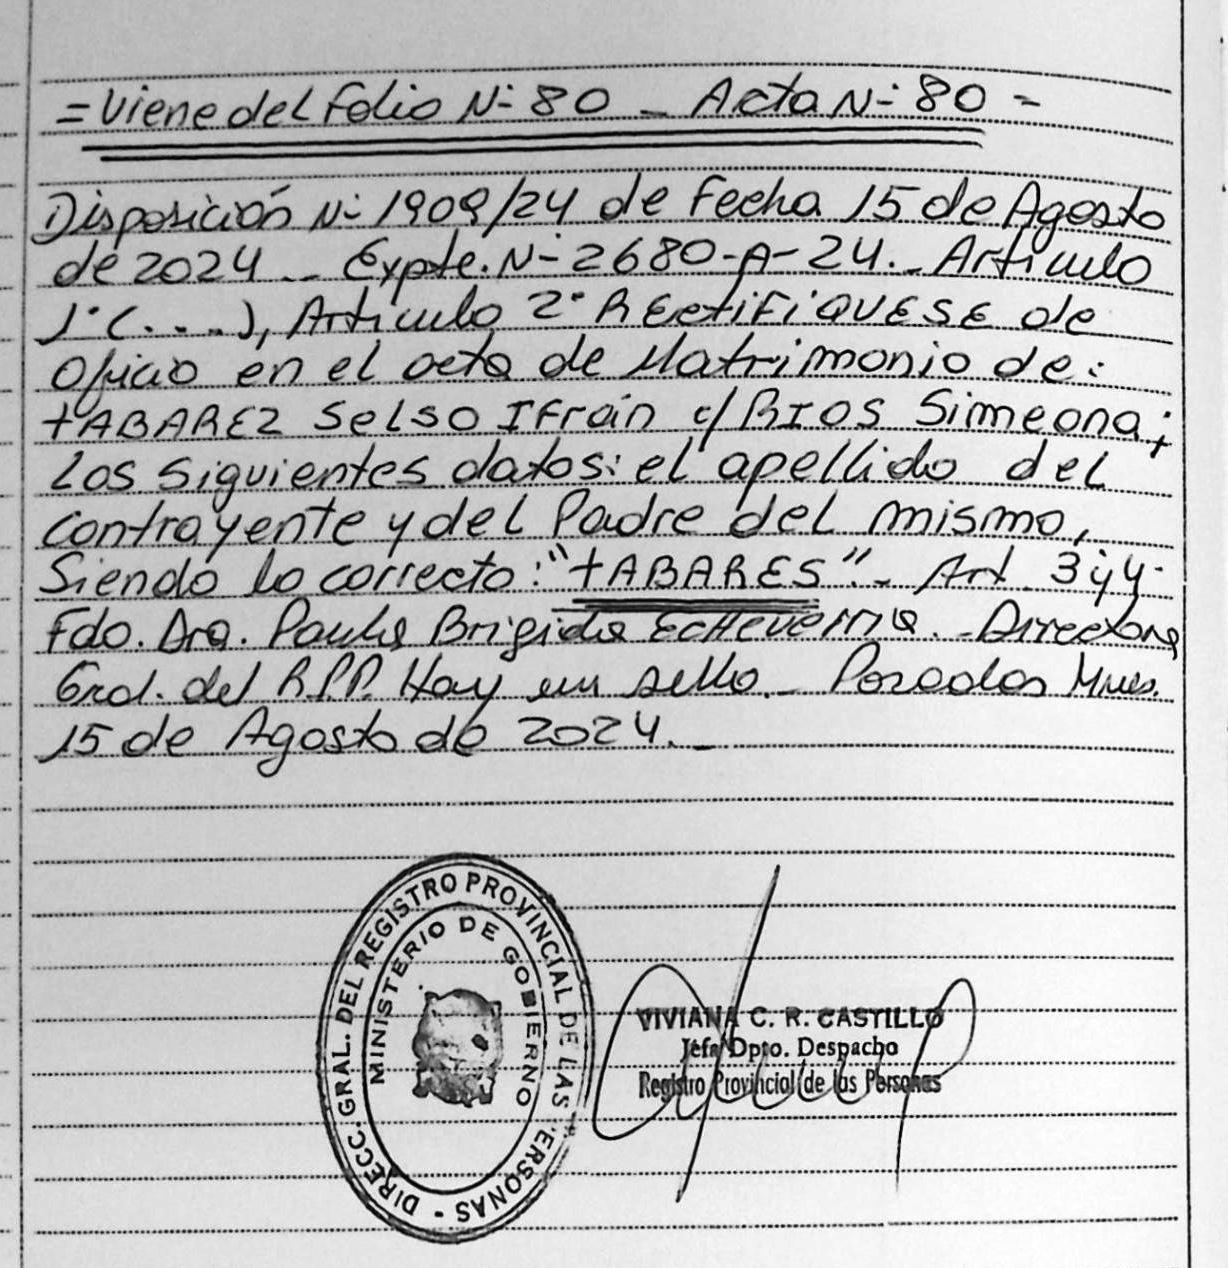 = Viene del Folio N- 80 _ Acta N- 80 =
Disposición N- 1909/24 de Fecha 15 de Agosto
de 2024 _ Expte. N- 2680-A-24._ Artículo
1° (....), Artículo 2° RECTIFIQUESE de
Oficio en el acta de Matrimonio de:
TABAREZ Selso Ifrán c/ RIOS Simeona;
Los Siguientes datos: el apellido del
contrayente y del Padre del mismo,
Siendo lo correcto: "TABARES"._ Art 3 y 4-
Fdo. Dra. Paula Brigida Echeverria. _ Directora
Gral. del R.P.P. Hay un sello._ Posadas Mnes.
15 de Agosto de 2024._
DIRECC. GRAL. DEL REGISTRO PROVINCIAL DE LAS PERSONAS -
MINISTERIO DE GOBIERNO
VIVIANA C. R. CASTILLO
Jefa Dpto. Despacho
Registro Provincial de las Personas